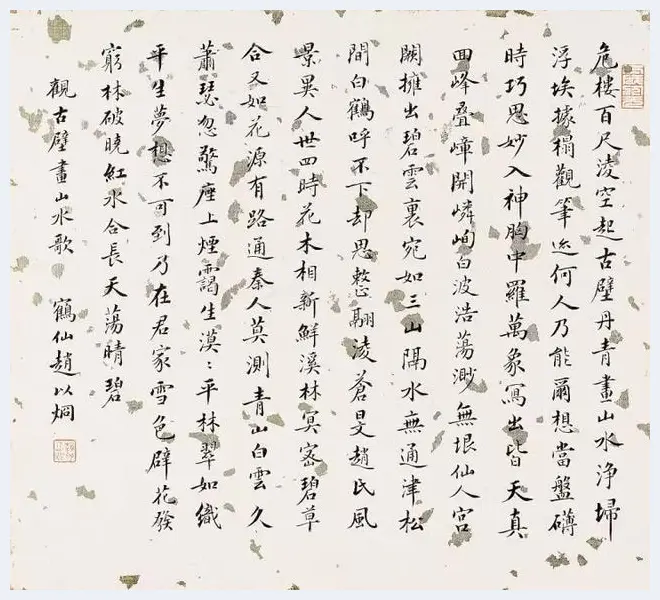 危樓百尺淩空起古壁丹青畫山水淨埽
浮埃據榻觀筆迹何人乃能爾想當盤礴
時巧思妙入神胸中羅萬象寫出皆天真
回峰疊嶂開嶙峋白波浩蕩渺無垠仙人宮
闕擁出碧雲裏宛如三山隔水無通津松
間白鶴呼不下却思整翮淩蒼旻趙氏風
景異人世四時花木相新鮮溪林冥密碧草
合又如花源有路通秦人莫測青山白雲久
蕭瑟忽驚座上煙靄生漠〻平林翠如織
平生夢想不可到乃在君家雪色壁花發
窮林破曉紅水合長天蕩晴碧
觀古壁畫山水歌 鶴仙趙以烱